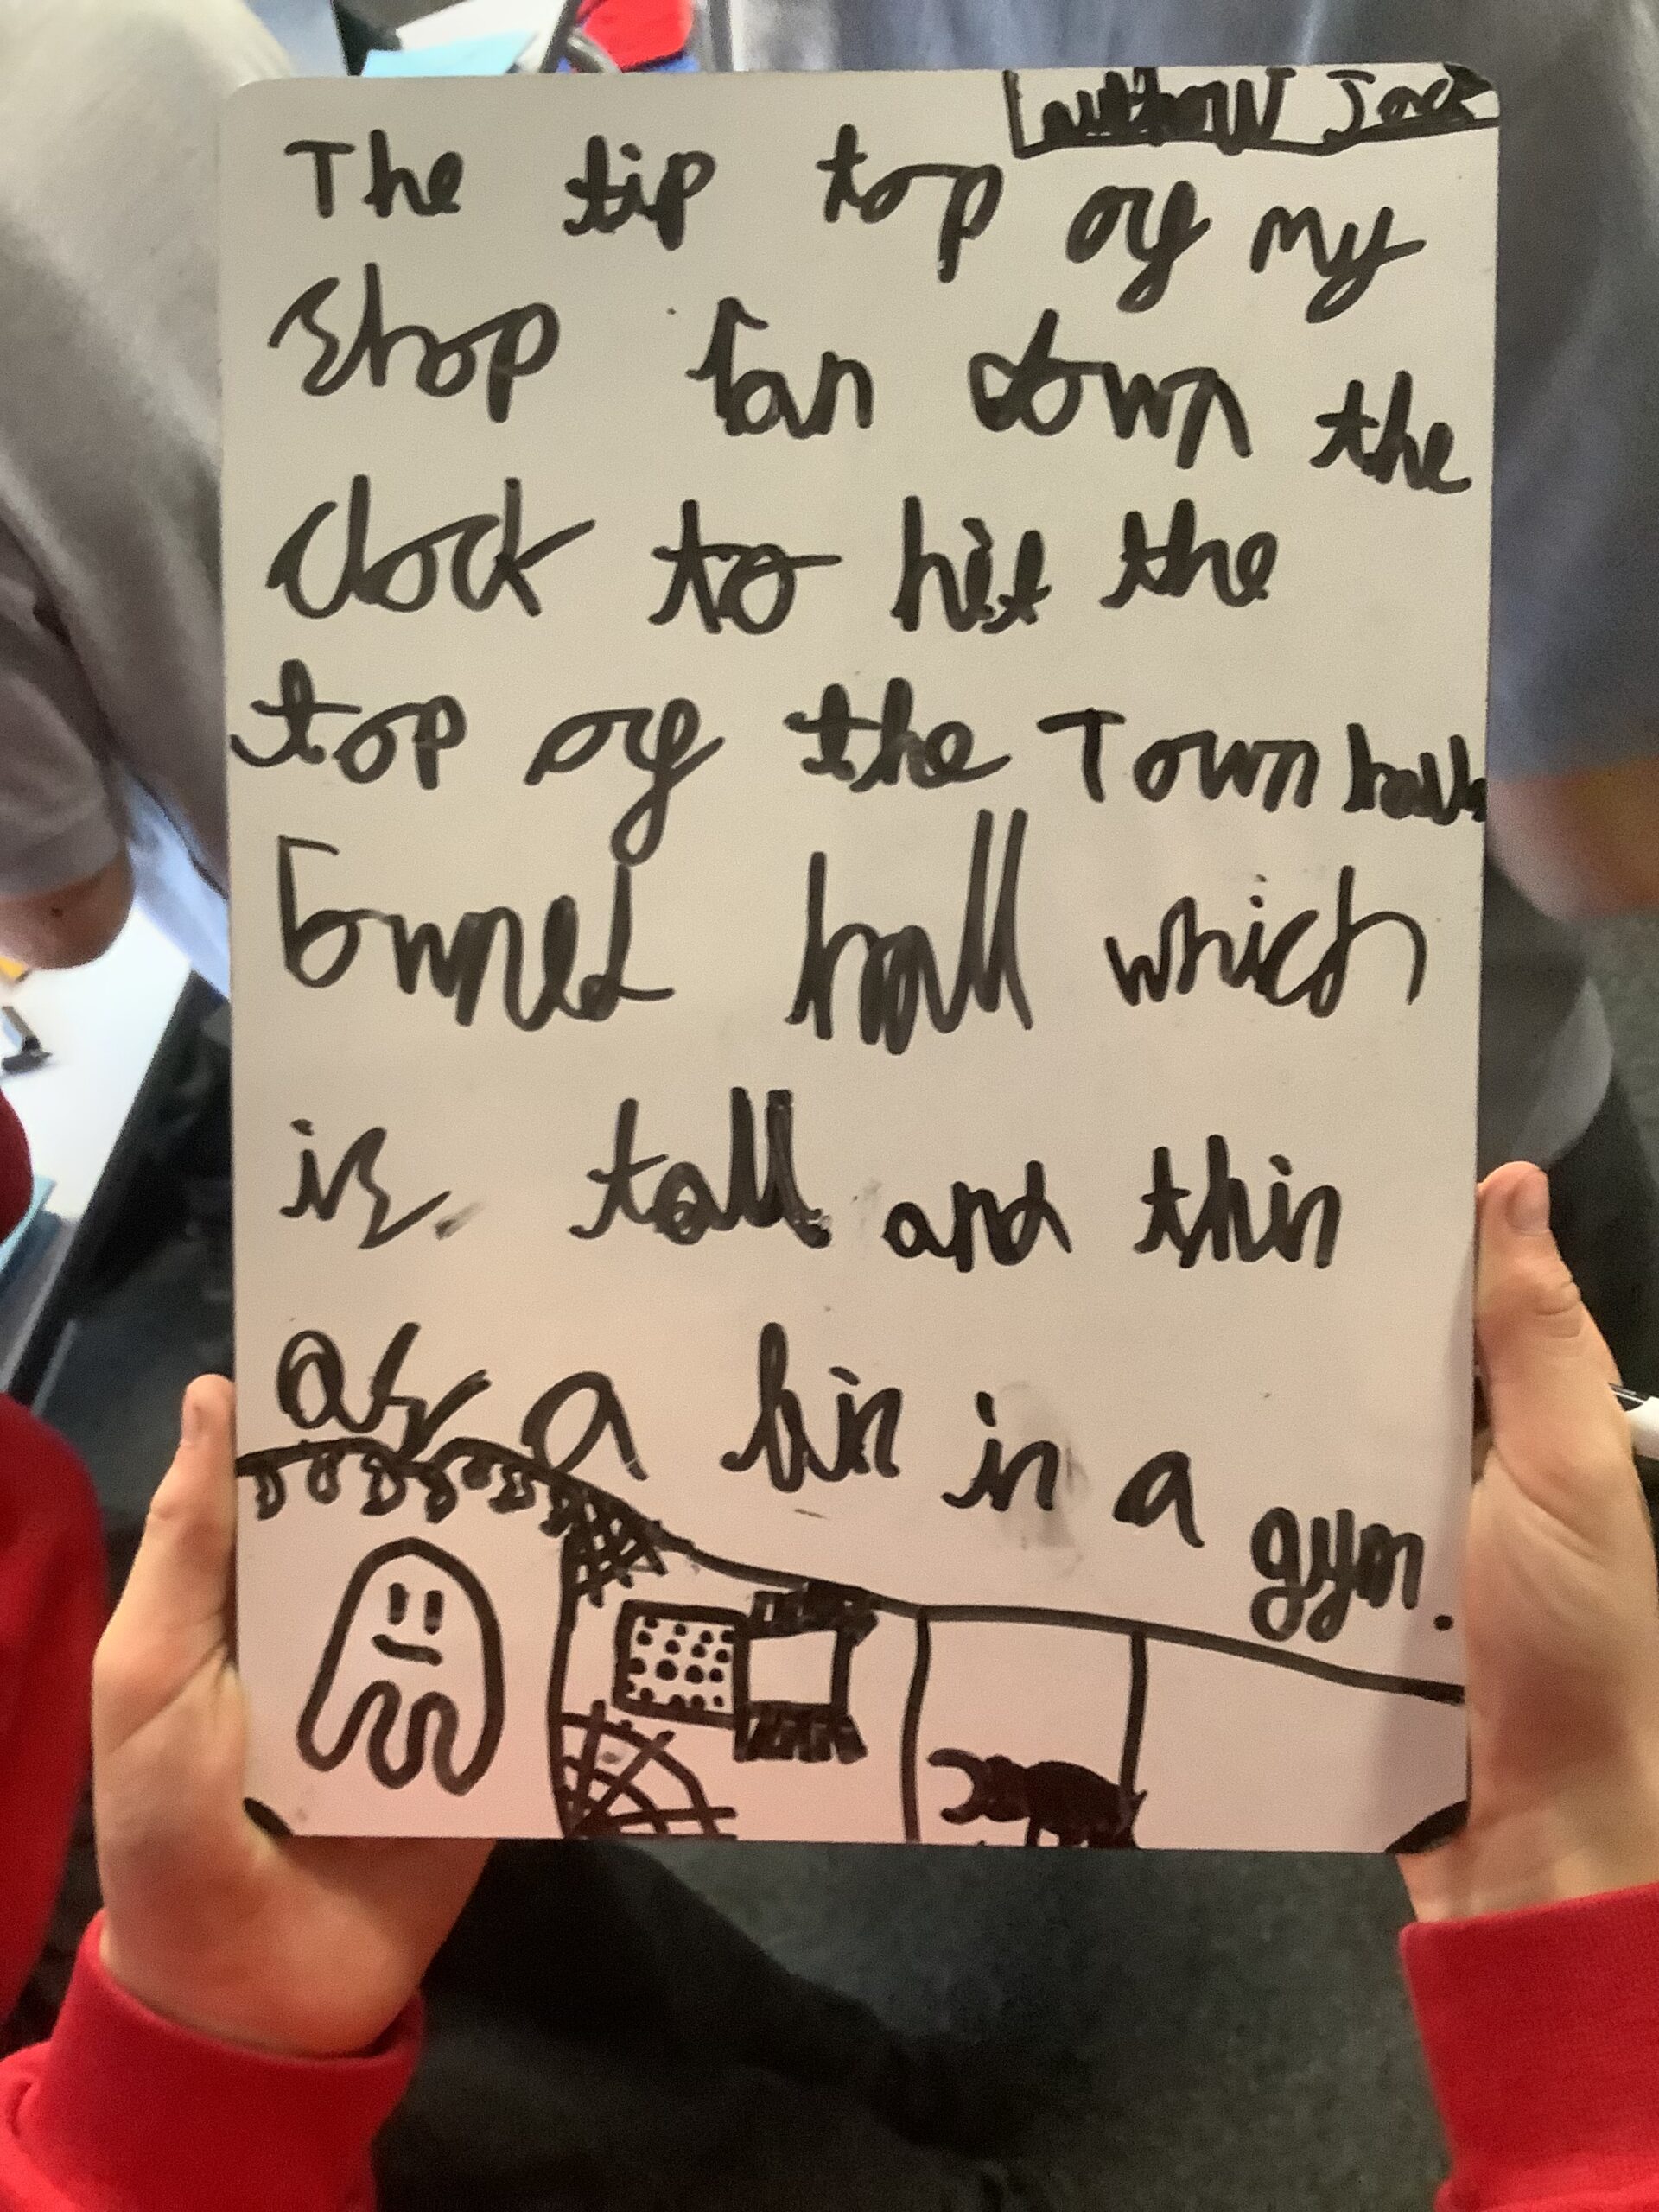 Jack
The tip top of my
shop ran down the
clock to hit the
top of the Town hall
hall which
is tall and thin
as a bin in a
gym.